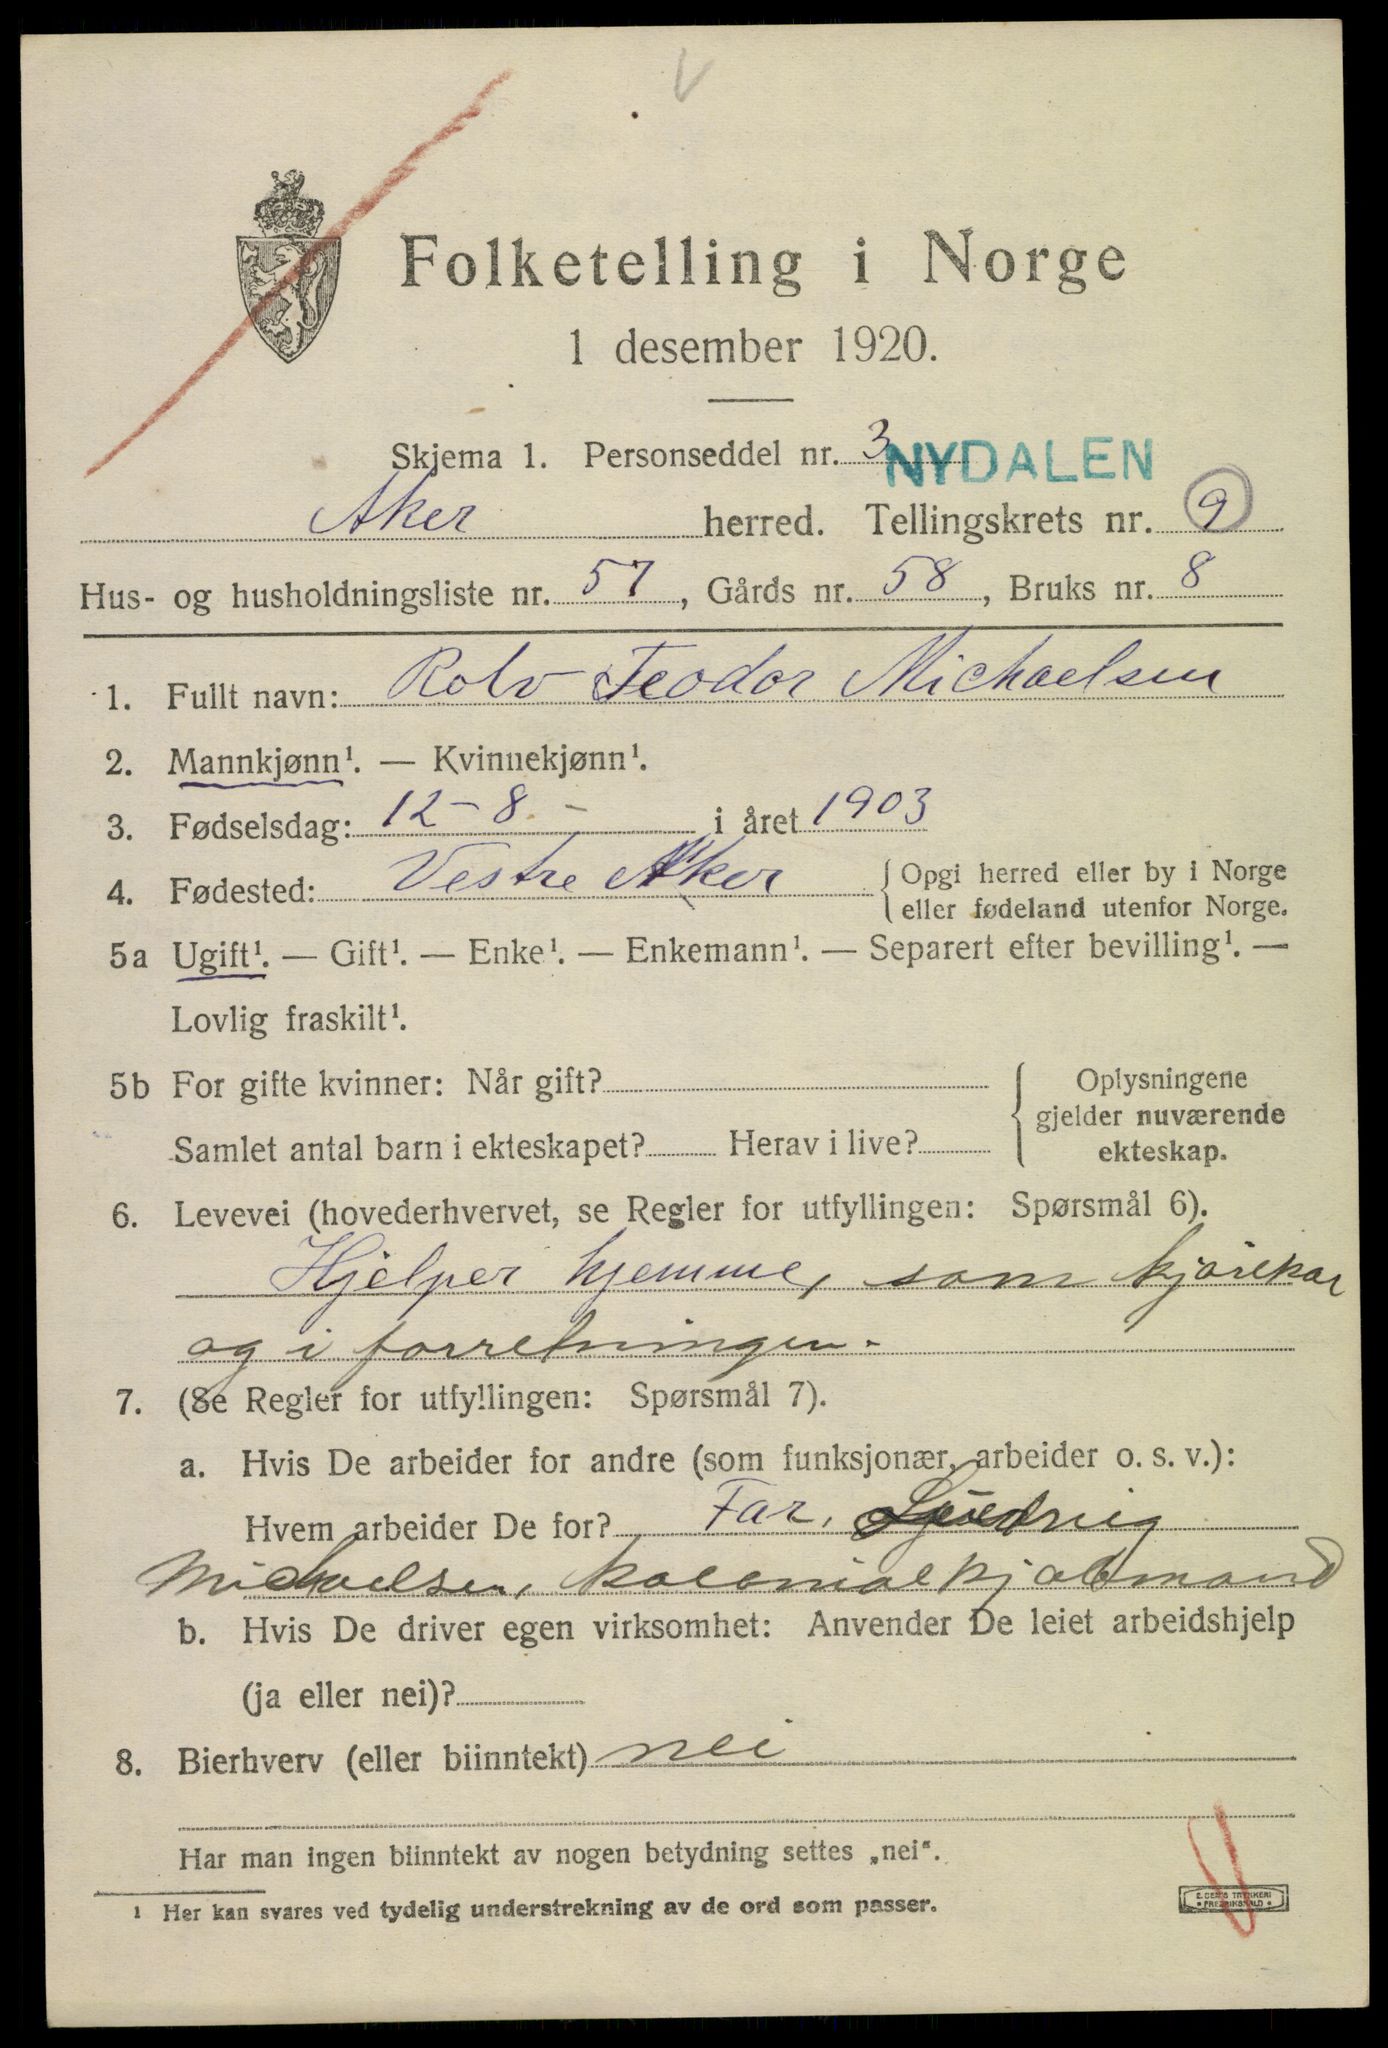 Folketelling i Norge
1 desember 1920.
Skjema 1. Personseddel nr. 3 NYDALEN
Aker herred. Tellingskrets nr. 9
Hus- og husholdningsliste nr. 57, Gårds nr. 58, Bruks nr. 8
1. Fullt navn: Rolv Teodor Michaelsen
2. Mannkjønn¹. — Kvinnekjønn¹.
3. Fødselsdag: 12-8.- i året 1903
4. Fødested: Vestre Aker { Opgi herred eller by i Norge
eller fødeland utenfor Norge.
5a Ugift¹. — Gift¹. — Enke¹. — Enkemann¹. — Separert efter bevilling¹. —
Lovlig fraskilt¹.
5b For gifte kvinner: Når gift? { Oplysningene
gjelder nuværende
Samlet antal barn i ekteskapet? Herav i live? ekteskap.
6. Levevei (hovederhvervet, se Regler for utfyllingen: Spørsmål 6).
Hjelper hjemme, som kjørekar
og i forretningen.
7. (Se Regler for utfyllingen: Spørsmål 7).
a. Hvis De arbeider for andre (som funksjonær, arbeider o. s. v.):
Hvem arbeider De for? Far, Ludvig
Michaelsen, kolonialkjøbmand
b. Hvis De driver egen virksomhet: Anvender De leiet arbeidshjelp
(ja eller nei)?
8. Bierhverv (eller biinntekt) nei
Har man ingen biinntekt av nogen betydning settes „nei“.
1 Her kan svares ved tydelig understrekning av de ord som passer.